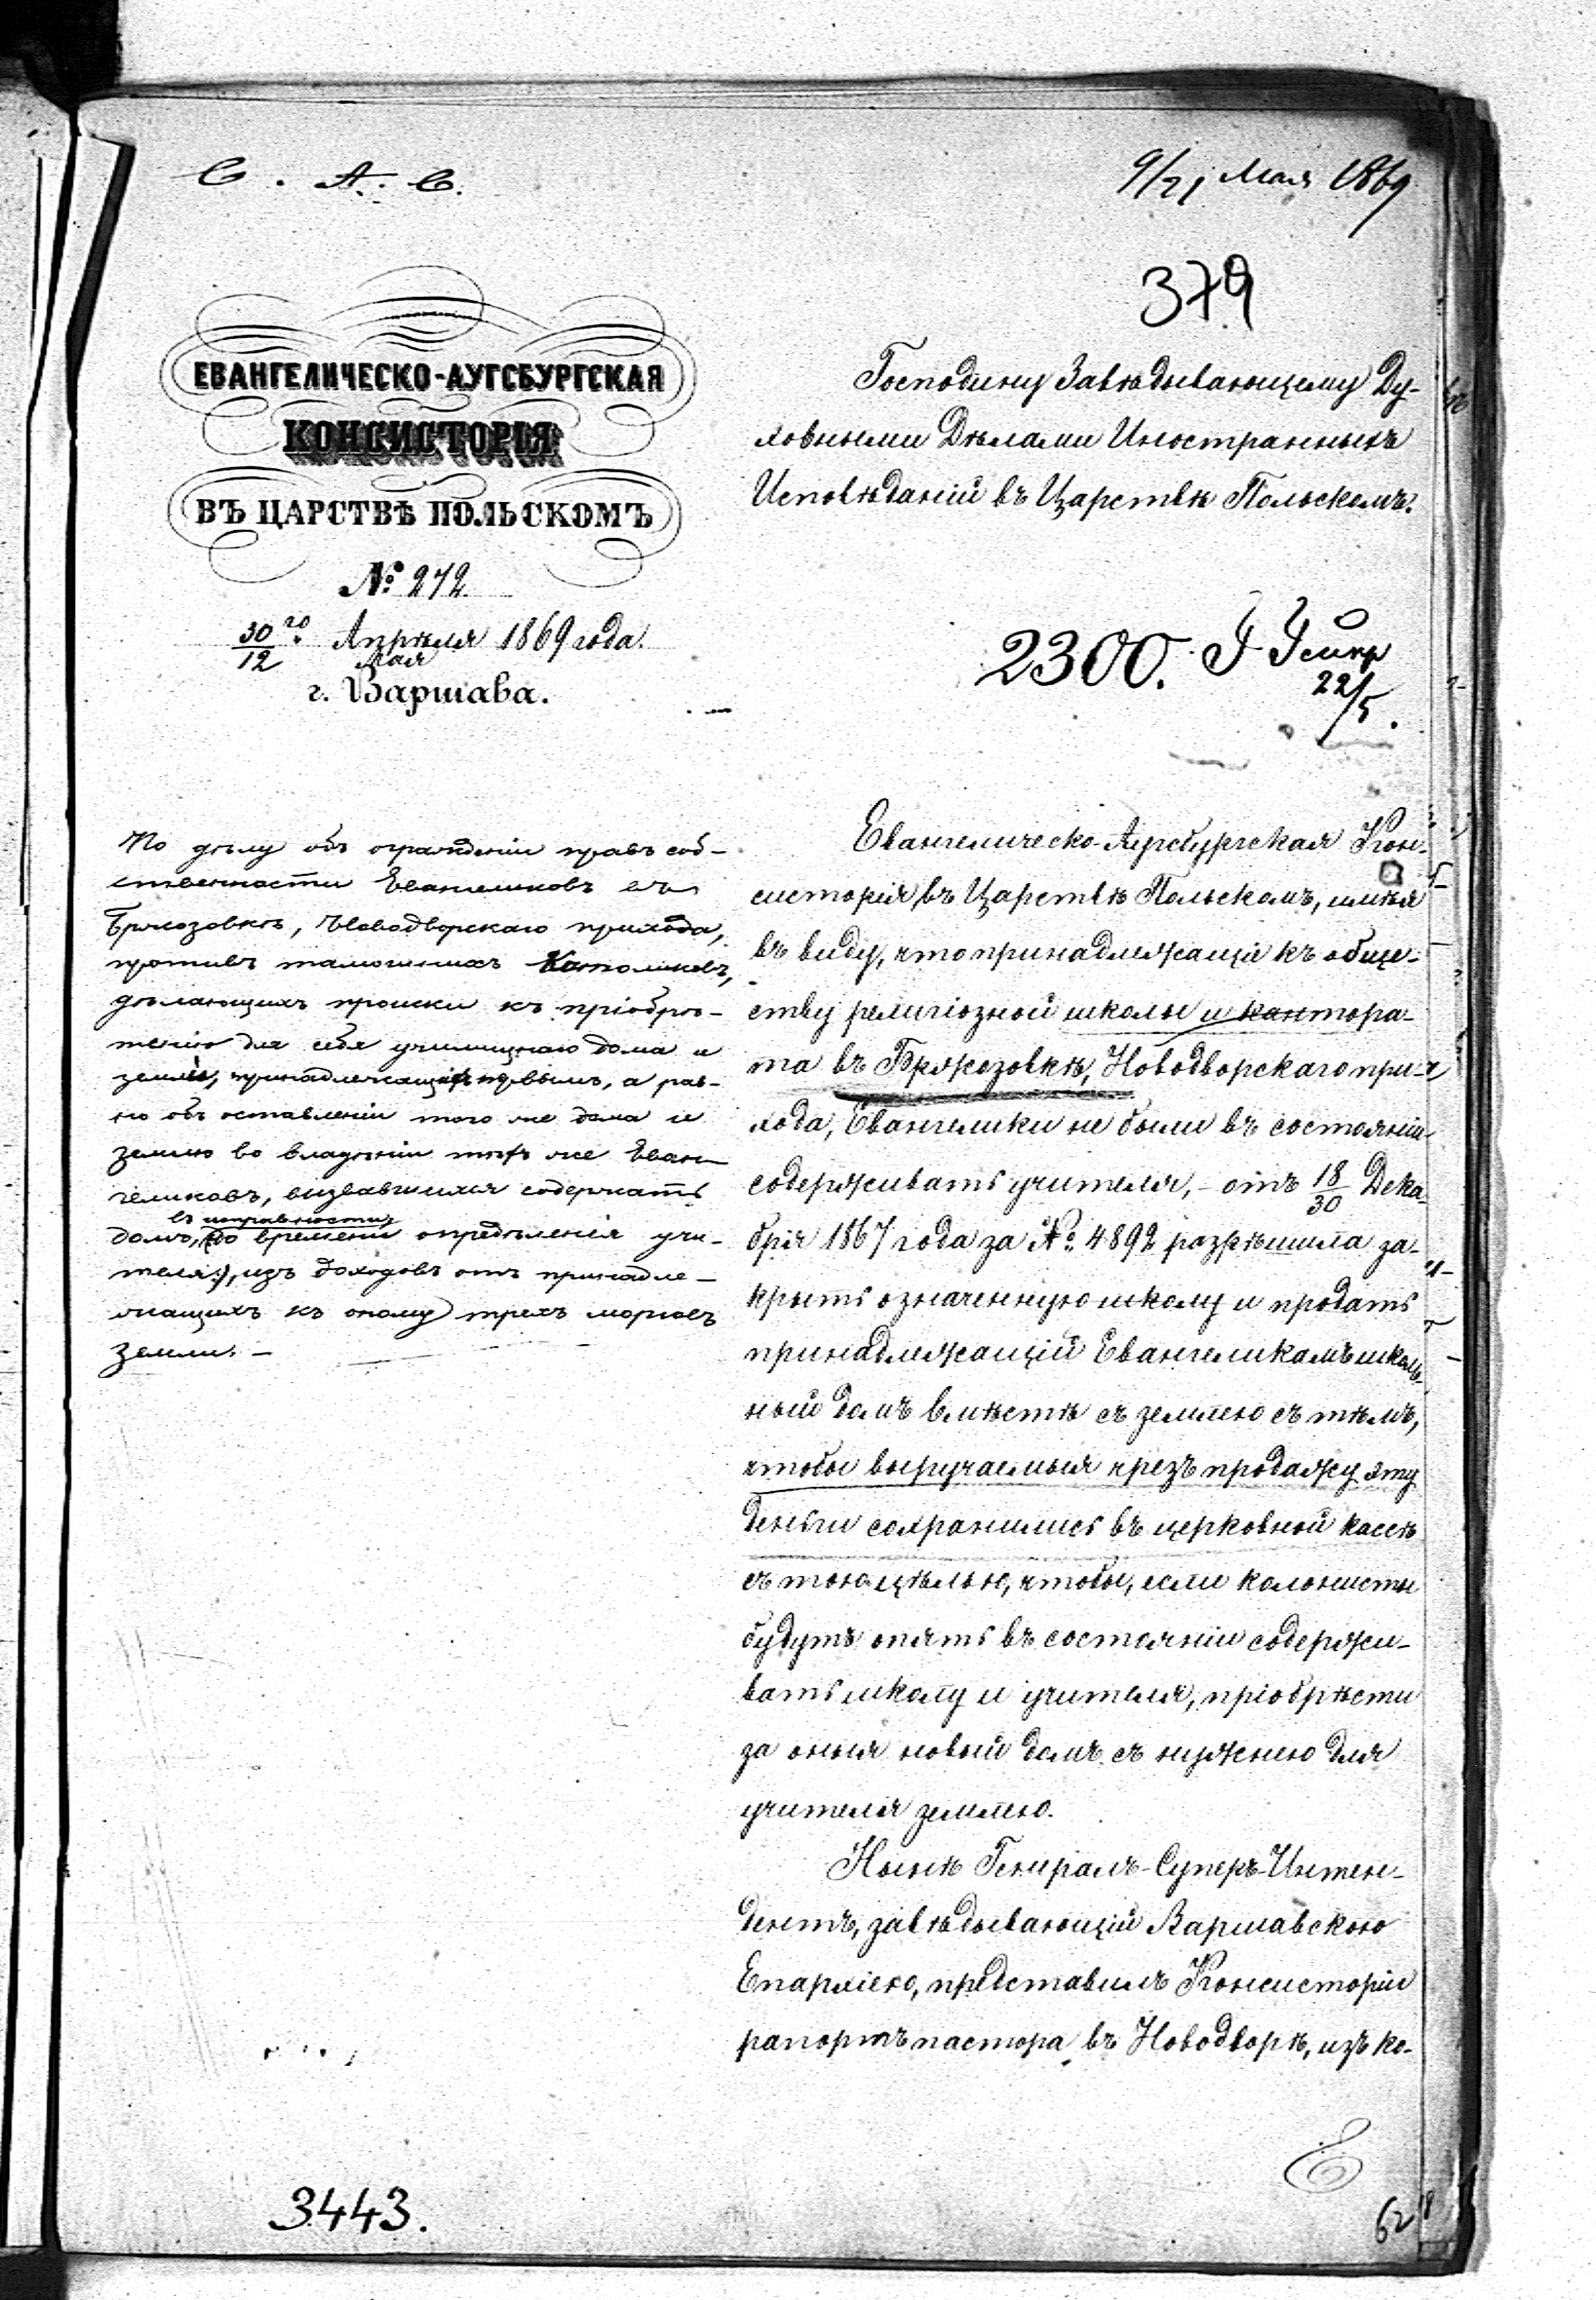 С. А. С.
9/21 Мая 1869
379
ЕВАНГЕЛИЧЕСКО-АУГСБУРГСКАЯ
КОНСИСТОРІЯ
ВЪ ЦАРСТВѢ ПОЛЬСКОМЪ
№ 272.
30/12 го Апрѣля/Мая 1869 года.
г. Варшава.
Господину Завѣдывающему Ду-
ховными Дѣлами Иностранныхъ
Исповѣданій въ Царствѣ Польскомъ.
2300.
22/5.
По дѣлу объ огражденіи правъ соб-
ственности Евангеликовъ въ
Бржозовкѣ, Новодворскаго прихода,
противъ тамошнихъ Католиковъ,
дѣлающихъ происки къ пріобрѣ-
тенію для себя училищнаго дома и
земли, принадлежащихъ первымъ, а рав-
но объ оставленіи того же дома и
землю во владѣніи тѣхъ же Еван-
геликовъ, вызвавшихся содержать
въ исправности
домъ, (до времени опредѣленія учи-
теля:), изъ доходовъ отъ принадле-
жащихъ къ оному трехъ морговъ
земли. —
Евангелическо-Аугсбургская Кон-
систорія въ Царствѣ Польскомъ, имѣя
въ виду, что принадлежащіе къ обще-
ству религіозной школы и кантора-
та въ Бржозовкѣ, Новодворскаго при-
хода, Евангелики не были въ состояніи
содерживать учителя, - отъ 18/30 Дека-
бря 1867 года за № 4892 разрѣшила за-
крыть означенную школу и продать
принадлежащій Евангеликамъ школь-
ный домъ вмѣстѣ съ землею съ тѣмъ,
чтобы выручаемыя чрезъ продажу эту
деньги сохранились въ церковной кассѣ
съ тою цѣлью, чтобы, если колонисты
будутъ опять въ состояніи содержи-
вать школу и учителя, пріобрѣсти
за оныя новый домъ съ нужною для
учителя землею.
Нынѣ Генералъ-Суперъ-Интен-
дентъ, завѣдывающій Варшавскою
Епархіею, представилъ Консисторіи
рапортъ пастора въ Новодворѣ, изъ ко-
3443.
62